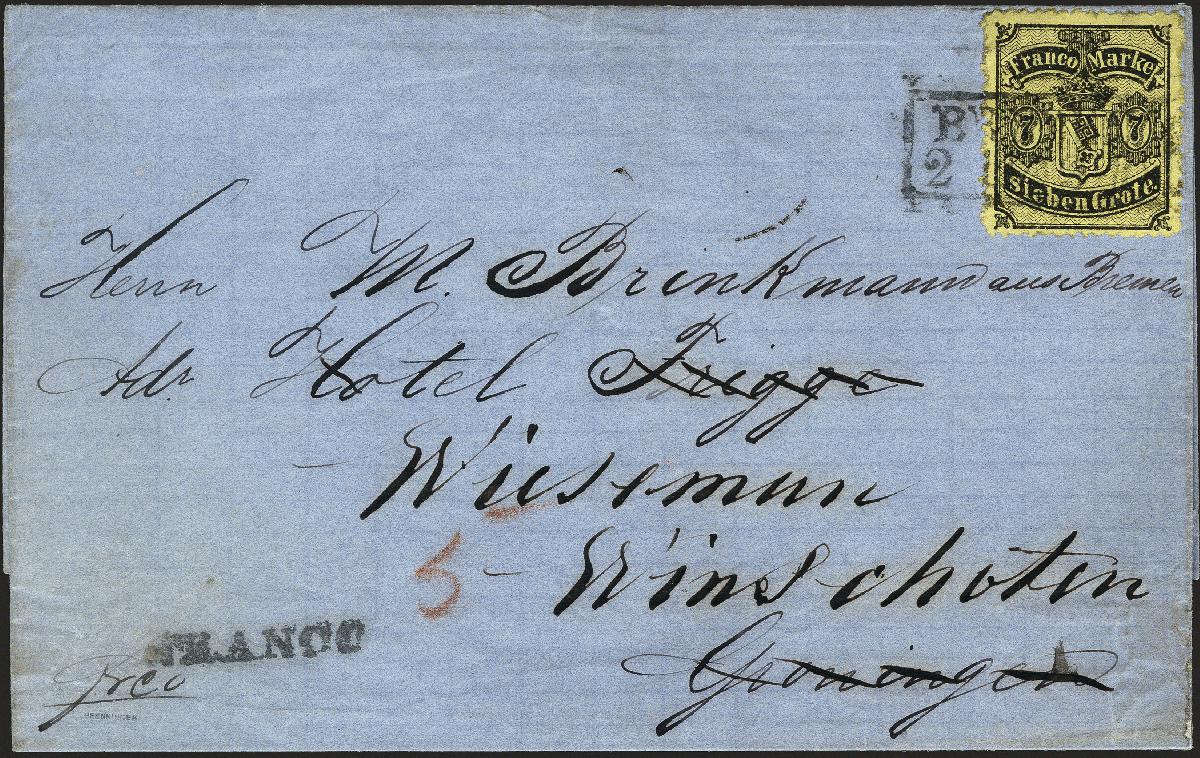 Franco Marke
7 7
Sieben Grote.
2
Herrn M. Brinkmann aus Bremen
Adr. Hotel Frigge
Wieseman
5 - Winschoten
FRANCO
Groningen
frco